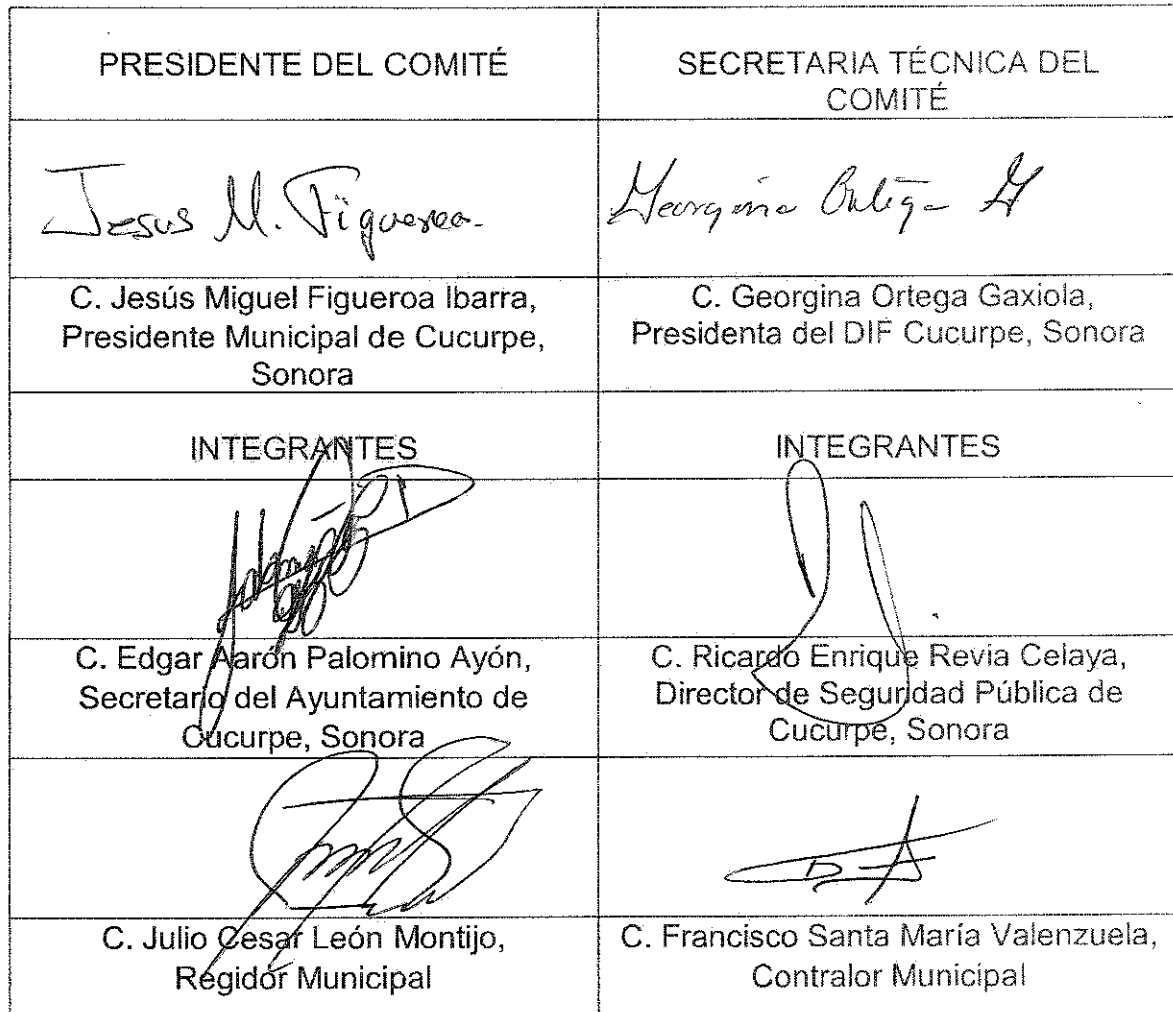 PRESIDENTE DEL COMITÉ
SECRETARIA TÉCNICA DEL
COMITÉ
Jesus M. Figueroa.
Georgina Ortega G
C. Jesús Miguel Figueroa Ibarra,
Presidente Municipal de Cucurpe,
Sonora
C. Georgina Ortega Gaxiola,
Presidenta del DIF Cucurpe, Sonora
INTEGRANTES
INTEGRANTES
C. Edgar Aarón Palomino Ayón,
Secretario del Ayuntamiento de
Cucurpe, Sonora
C. Ricardo Enrique Revia Celaya,
Director de Seguridad Pública de
Cucurpe, Sonora
C. Julio Cesar León Montijo,
Regidor Municipal
C. Francisco Santa María Valenzuela,
Contralor Municipal